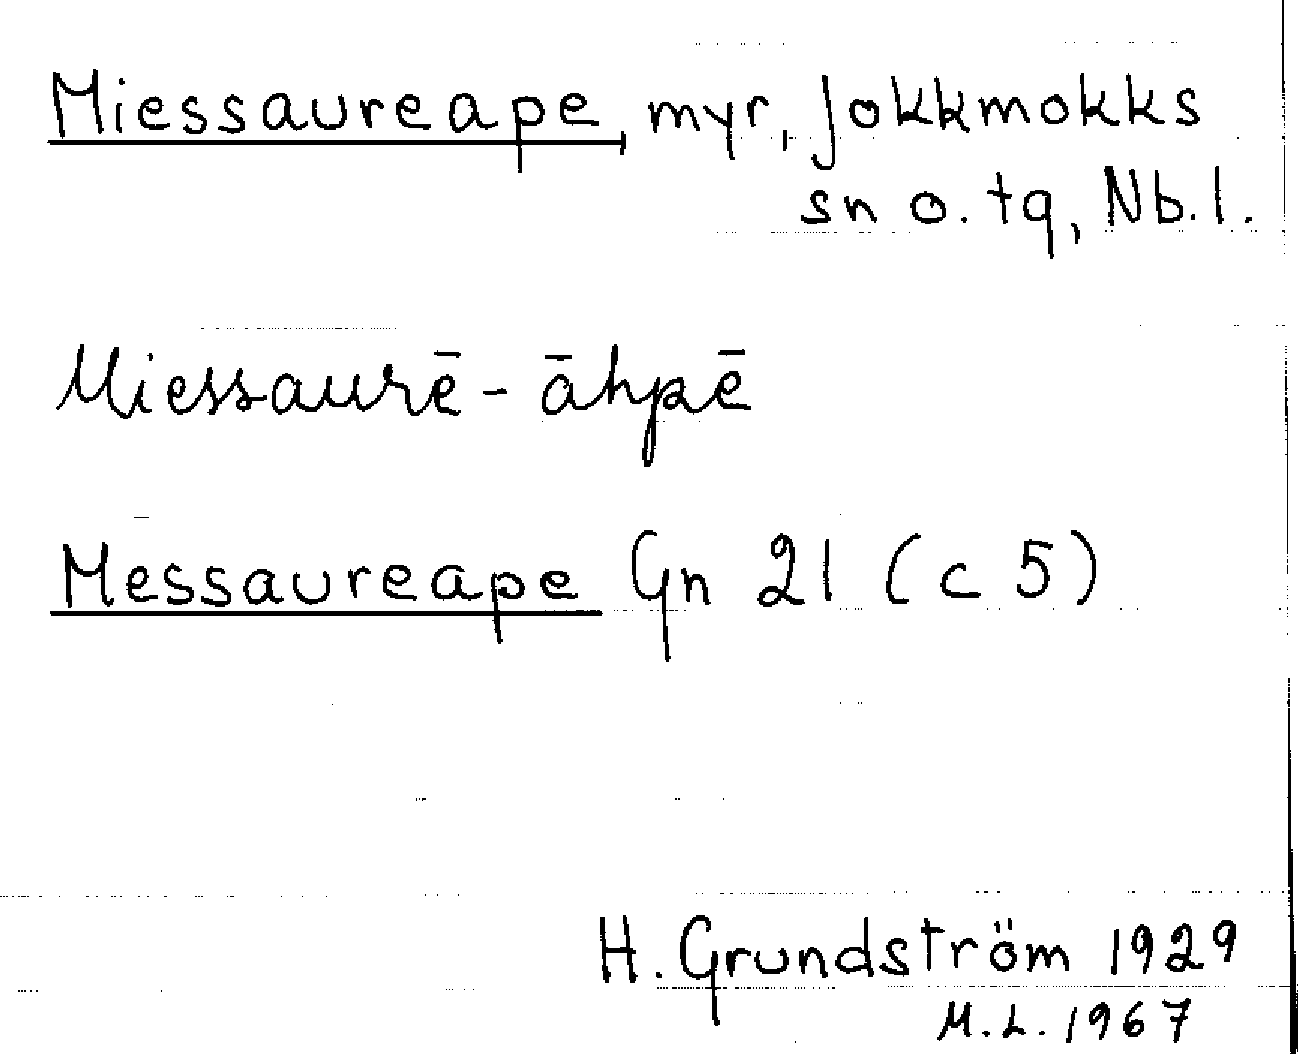 Miessaureape, myr, Jokkmokks
sn o. tg, Nb. l.
Miessaurē-āhpē
Messaureape Gn 21 (c 5)
H. Grundström 1929
M.L. 1967